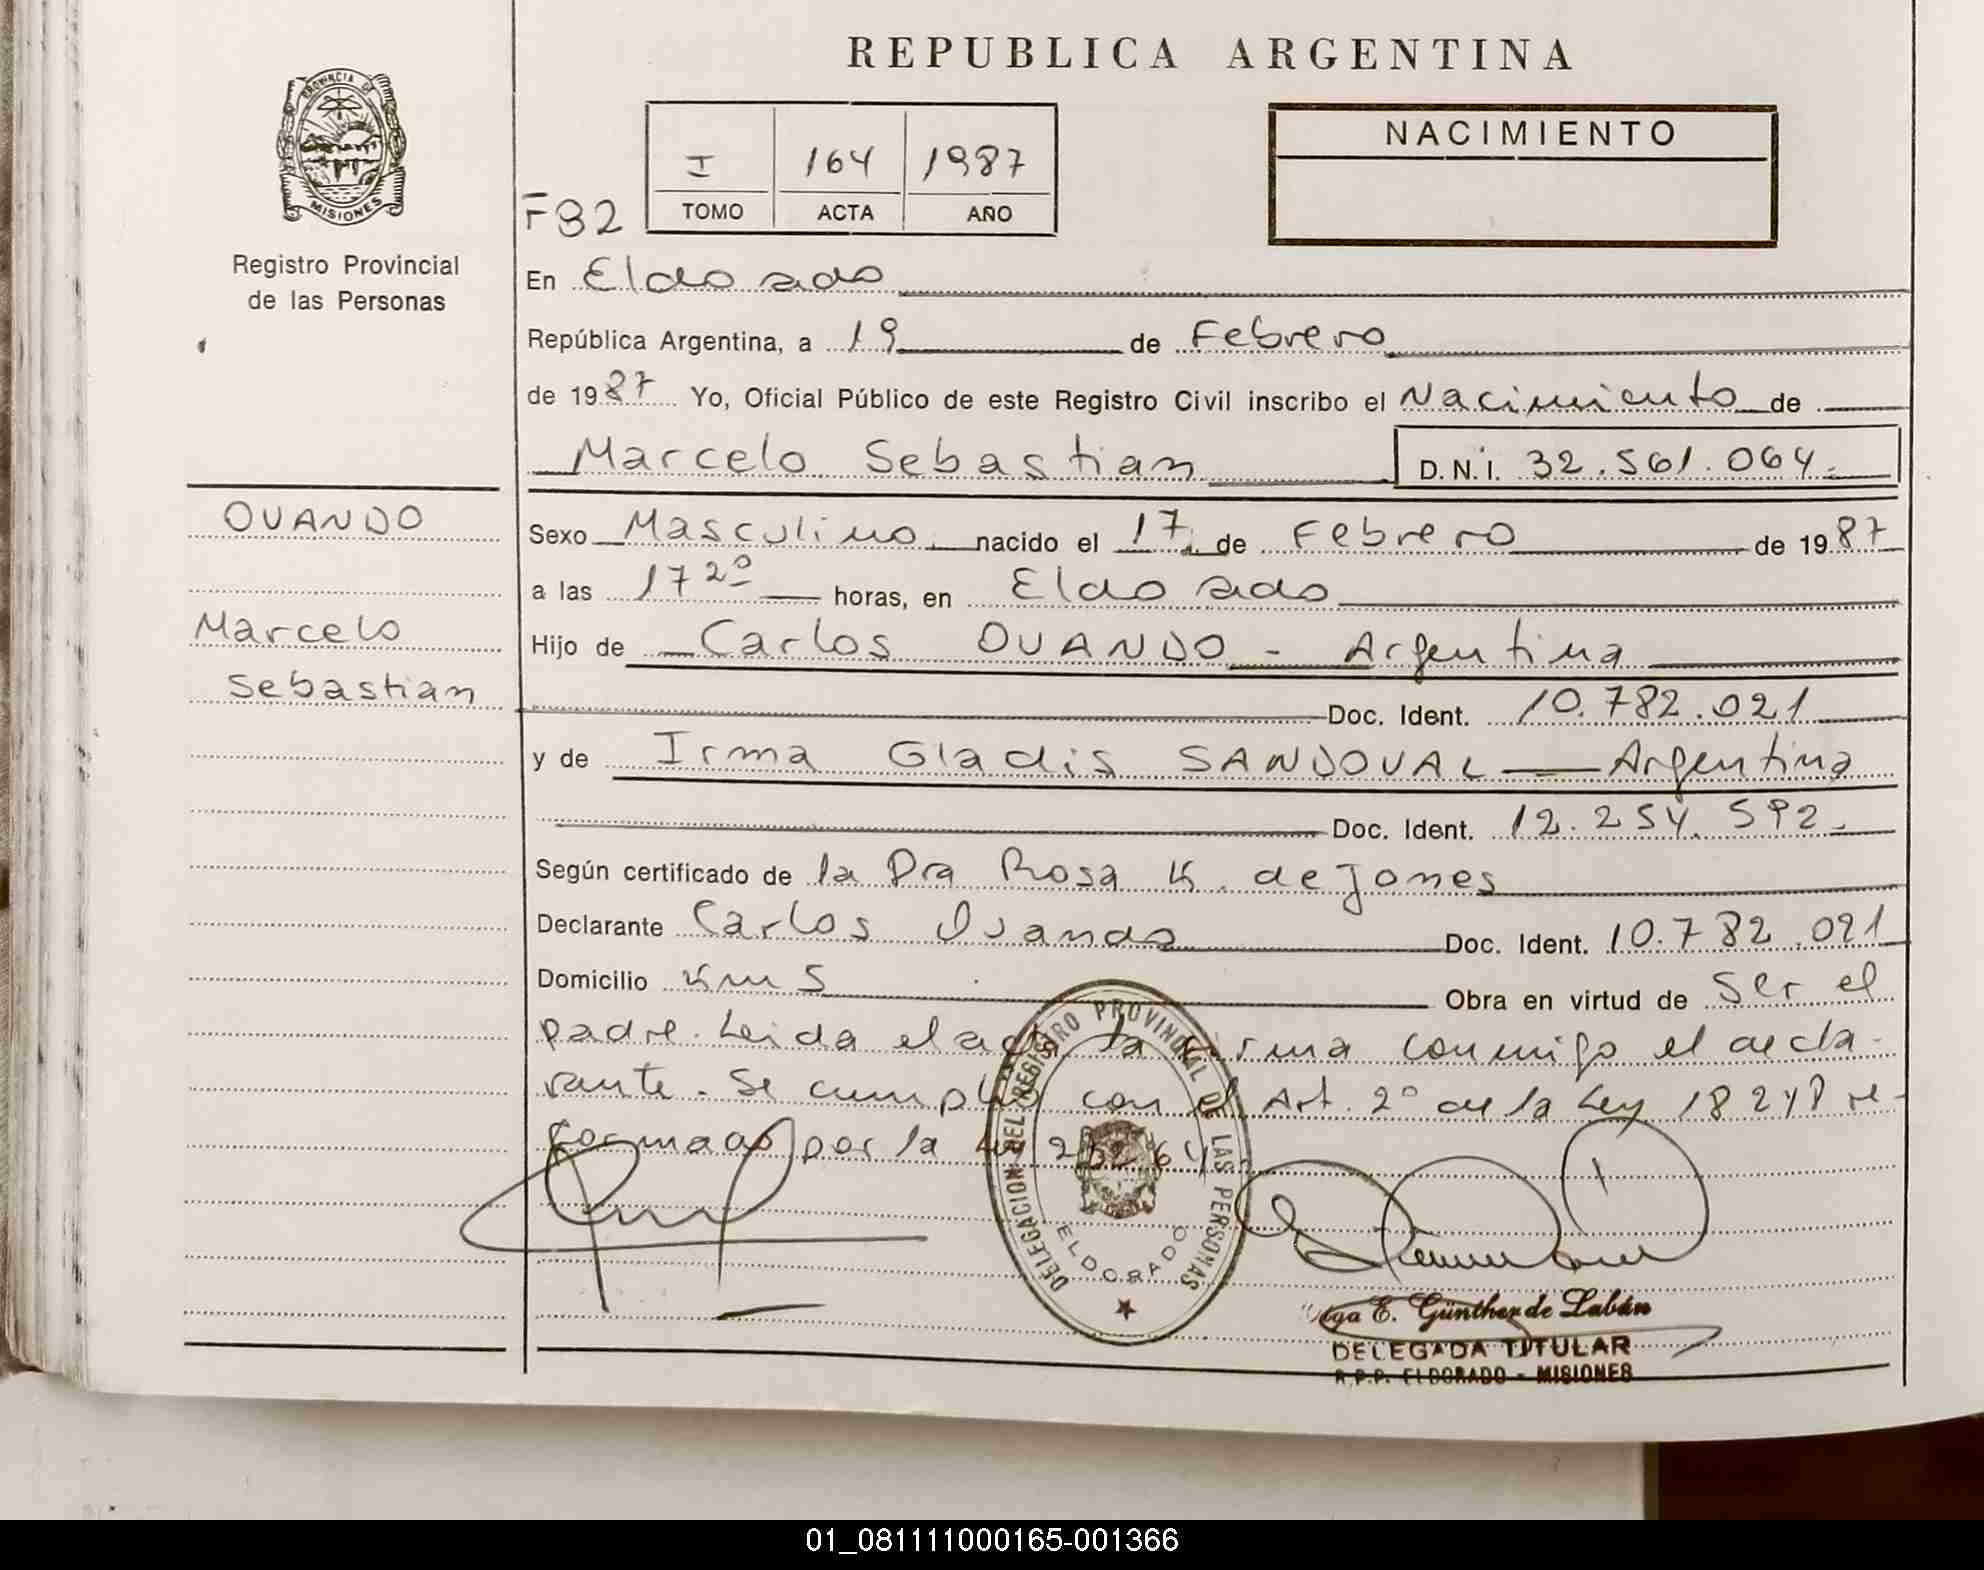 REPUBLICA ARGENTINA
PROVINCIA DE
MISIONES
Registro Provincial
de las Personas
I 164 1987
TOMO ACTA AÑO
F82
NACIMIENTO
En Eldorado
República Argentina, a 19 de Febrero
de 1987 Yo, Oficial Público de este Registro Civil inscribo el Nacimiento de
Marcelo Sebastian D.N.I. 32.561.064.
OVANDO
Marcelo
Sebastian
Sexo Masculino nacido el 17 de Febrero de 1987
a las 17 20 horas, en Eldorado
Hijo de Carlos OVANDO - Argentina
Doc. Ident. 10.782.021
y de Irma Gladis SANDOVAL Argentina
Doc. Ident. 12.254.592.
Según certificado de la Dra Rosa K. de Jones
Declarante Carlos Ovando Doc. Ident. 10.782.021
Domicilio Km 5 Obra en virtud de Ser el
padre. Leida el acta la firma conmigo el decla-
rante. Se cumplió con el Art. 2º de la Ley 18248 re-
formado por la
DELEGACION DEL REGISTRO PROVINCIAL DE LAS PERSONAS
ELDORADO
E. Günther de Labán
DELEGADA TITULAR
R.P.P. ELDORADO - MISIONES
01_081111000165-001366